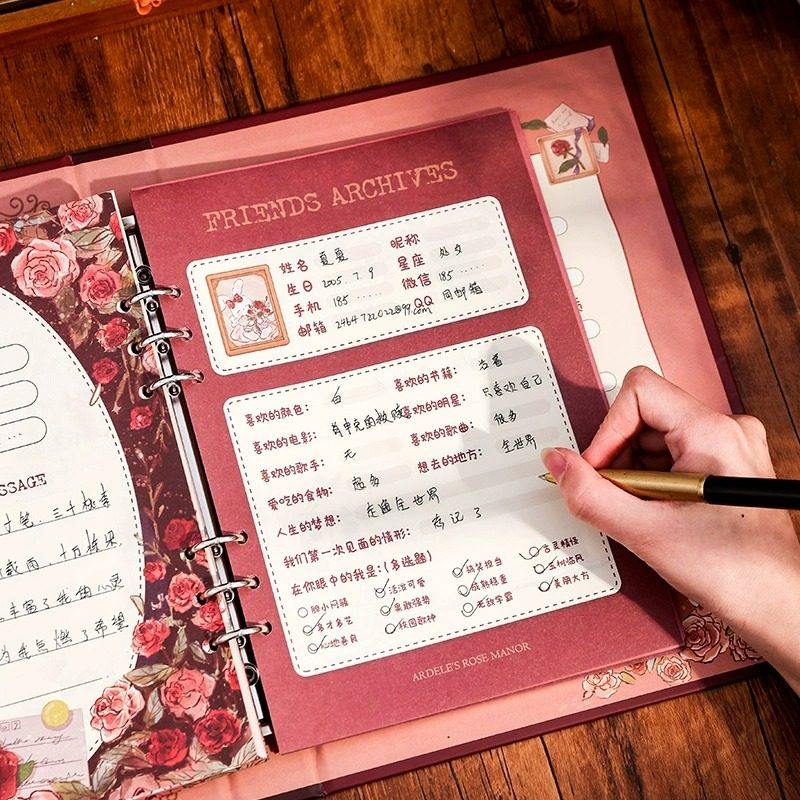 SSAGE
寸笔，三千桃李
载雨，十万栋梁
丰富了我的心灵
为我点燃了希望
FRIENDS ARCHIVES
姓名 夏夏 昵称
生日 2005.7.9 星座 处女
手机 185...... 微信 185......
邮箱 2464722022@99.com QQ 同邮箱
喜欢的颜色: 白 喜欢的书籍: 活着
喜欢的电影: 肖申克的救赎 喜欢的明星: 只喜欢自己
喜欢的歌手: 无 喜欢的歌曲: 很多
爱吃的食物: 超多 想去的地方: 全世界
人生的梦想: 走遍全世界
我们第一次见面的情形: 忘记了
在你眼中的我是:(多选题)
胆小闷骚 活泼可爱 搞笑担当 古灵精怪
多才多艺 果敢强势 成熟稳重 玉树临风
心地善良 校园歌神 无敌学霸 美丽大方
ARDELE'S ROSE MANOR